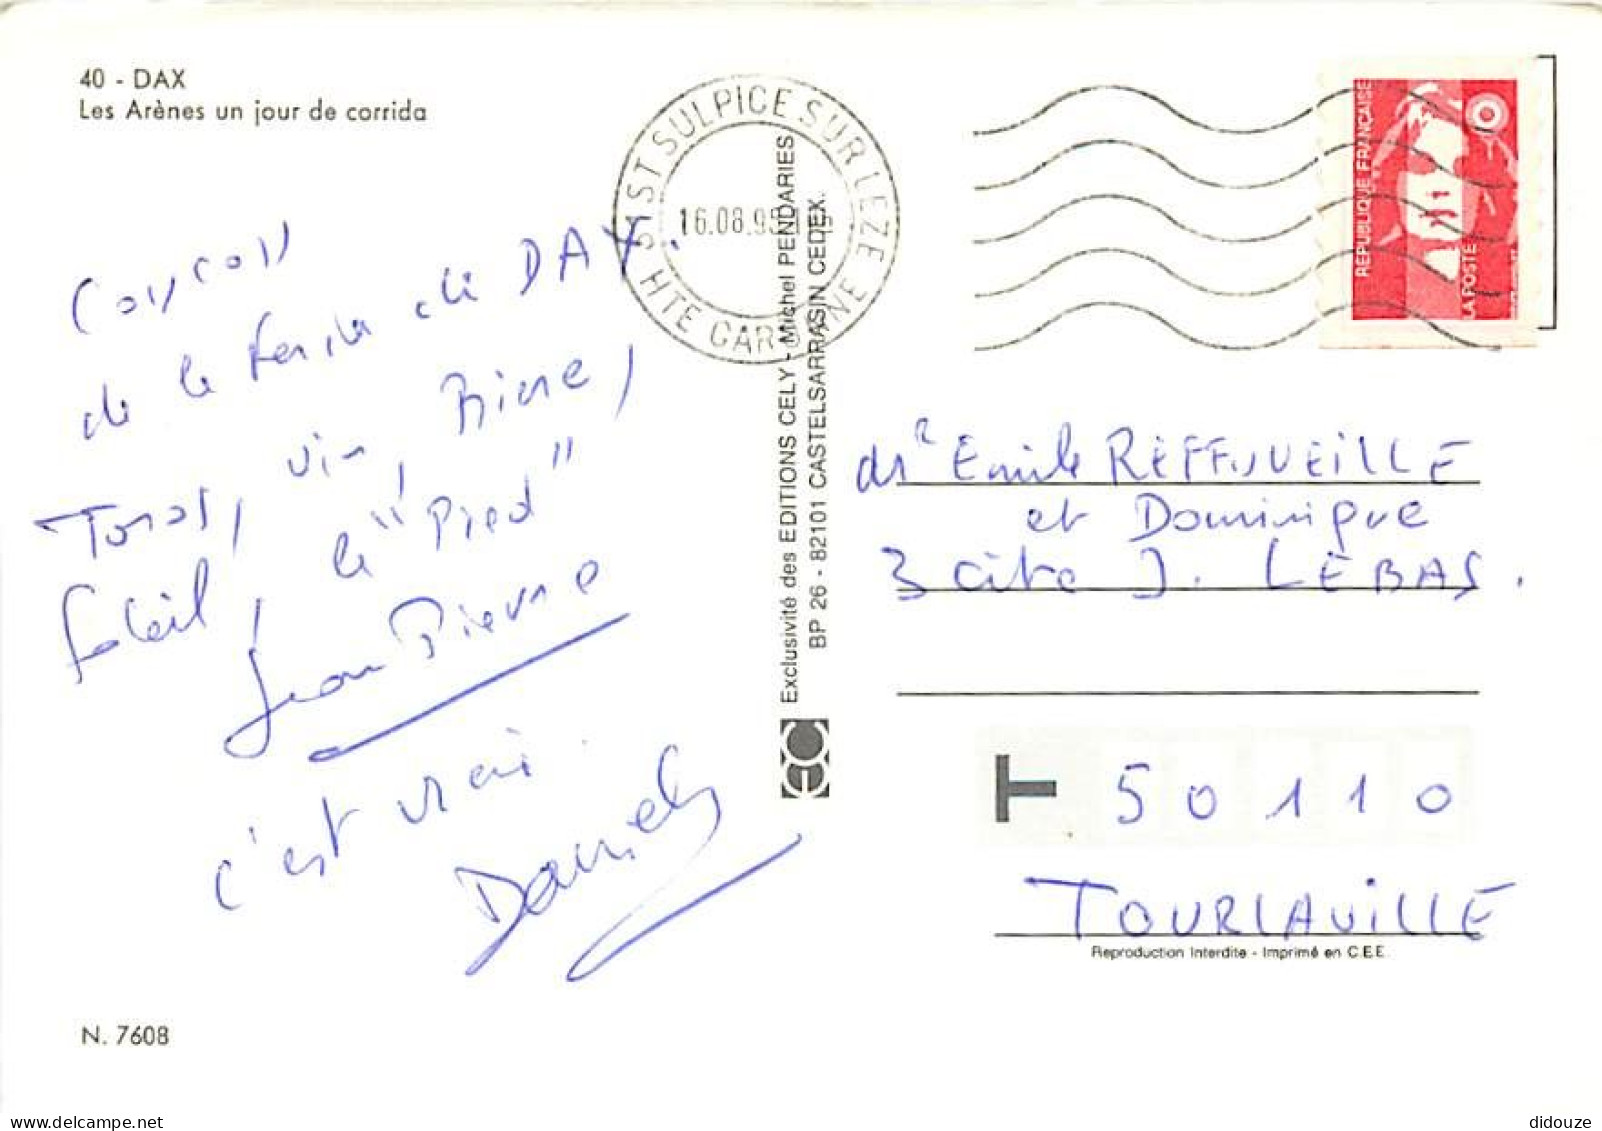 40 - DAX
Les Arènes un jour de corrida
Coucou
de la Feria de DAX.
Toros, vin, Bière,
Soleil, le "Pied"
Jean Pierre
c'est vrai.
N. 7608
31 ST SULPICE SUR LEZE
16.08.95
HTE GARONNE
Exclusivité des EDITIONS CELY - Michel PENDARIES
BP 26 - 82101 CASTELSARRASIN CEDEX.
REPUBLIQUE FRANÇAISE
LA POSTE
Emile REFFUVEILLE
et Dominique
3 cité J. LEBAS.
T 50110
TOURLAVILLE
Reproduction Interdite - Imprimé en C.E.E.
delcampe.net
didouze